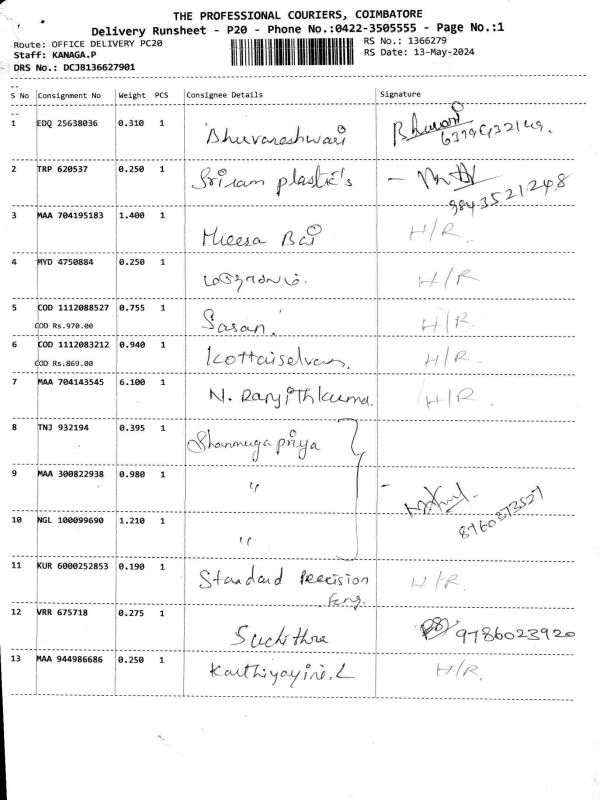 THE PROFESSIONAL COURIERS, COIMBATORE
Delivery Runsheet - P20 - Phone No.:0422-3505555 - Page No.:1
Route: OFFICE DELIVERY PC20 RS No.: 1366279
Staff: KANAGA.P RS Date: 13-May-2024
DRS No.: DCJB136627901
S No Consignment No Weight PCS Consignee Details Signature
1 EDQ 25638036 0.310 1 Bhuvaneshwari
2 TRP 620537 0.250 1 Sriram plastic's
9843521248
3 MAA 704195183 1.400 1 Meesa Bai H/R.
4 MYD 4750884 0.250 1 H/R
5 COD 1112088527 0.755 1 Sasan. H/R.
COD Rs.970.00
6 COD 1112083212 0.940 1 Kottaiselvan. H/R.
COD Rs.869.00
7 MAA 704143545 6.100 1 N. Ranjithkuma. H/R.
8 TNJ 932194 0.395 1 Shanmugapriya
9 MAA 300822938 0.980 1 "
8760873527
10 NGL 100099690 1.210 1 "
11 KUR 6000252853 0.190 1 Standard Precision H/R.
Eng.
12 VRR 675718 0.275 1 Suchithra 9786023920
13 MAA 944986686 0.250 1 Karthiyayini.L H/R.